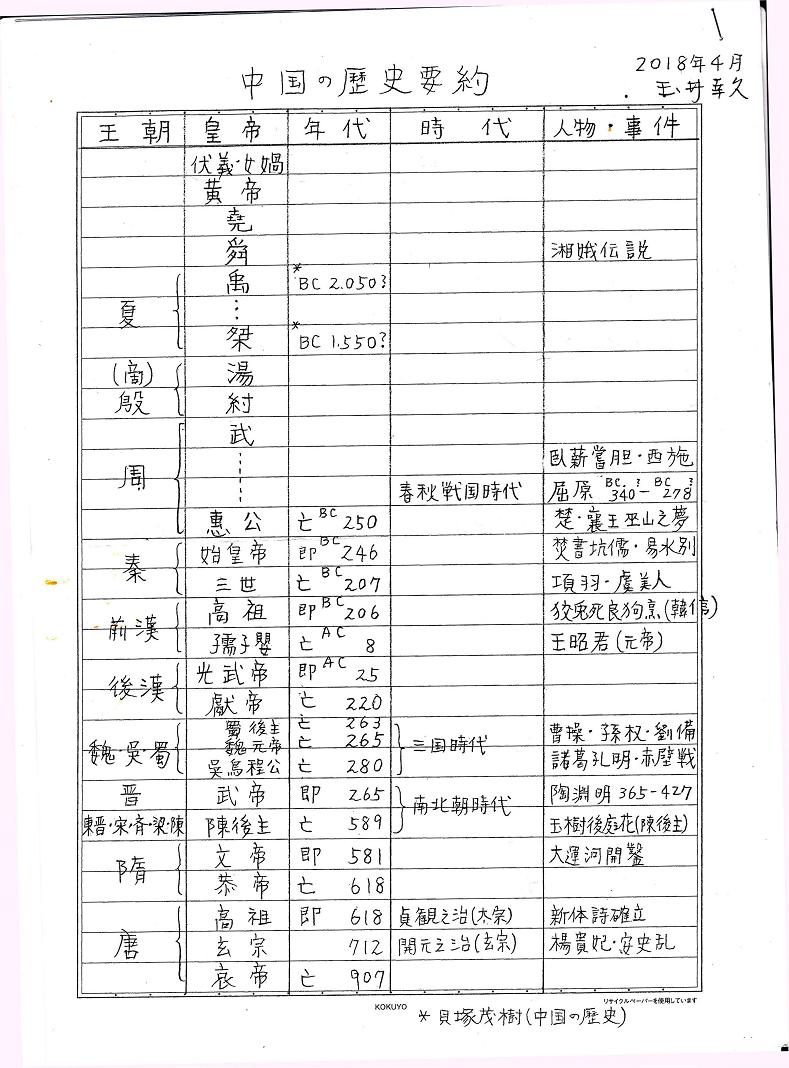 2018年4月
中国の歴史要約
玉井幸久
王朝 皇帝 年代 時代 人物・事件
伏義・女媧
黄帝
堯
舜 湘娥伝説
禹 *BC 2.050?
夏 ⋮
桀 *BC 1.550?
(商) 湯
殷 紂
武
臥薪嘗胆・西施
周 春秋戦国時代 屈原 BC.?340－BC?278
惠公 亡BC250 楚・襄王巫山之夢
秦 始皇帝 即BC246 焚書坑儒・易水別
三世 亡BC207 項羽・虞美人
前漢 高祖 即BC206 狡兎死良狗烹(韓信)
孺子嬰 亡AC8 王昭君(元帝)
後漢 光武帝 即AC25
獻帝 亡220
蜀後主 亡263
魏・吳・蜀 魏元帝 亡265 三国時代 曹操・孫权・劉備
吳烏程公 亡280 諸葛孔明・赤壁戦
晋 武帝 即265 南北朝時代 陶淵明365-427
東晋・宋・斉・梁・陳 陳後主 亡589 玉樹後庭花(陳後主)
隋 文帝 即581 大運河開鑿
恭帝 亡618
唐 高祖 即618 貞観之治(太宗) 新体詩確立
玄宗 712 開元之治(玄宗) 楊貴妃・安史乱
哀帝 亡907
KOKUYO リサイクルペーパーを使用しています
*貝塚茂樹(中国の歴史)